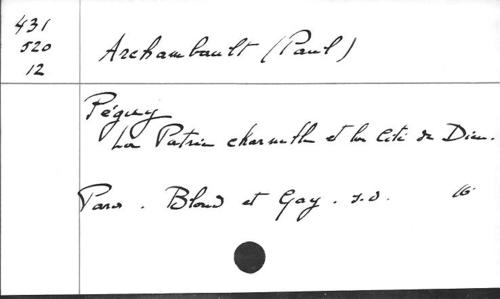 431
520
12
Archambault (Paul)
Péguy
La Patrie charnelle et la Cité de Dieu.
Paris. Bloud et Gay. s.d. 16